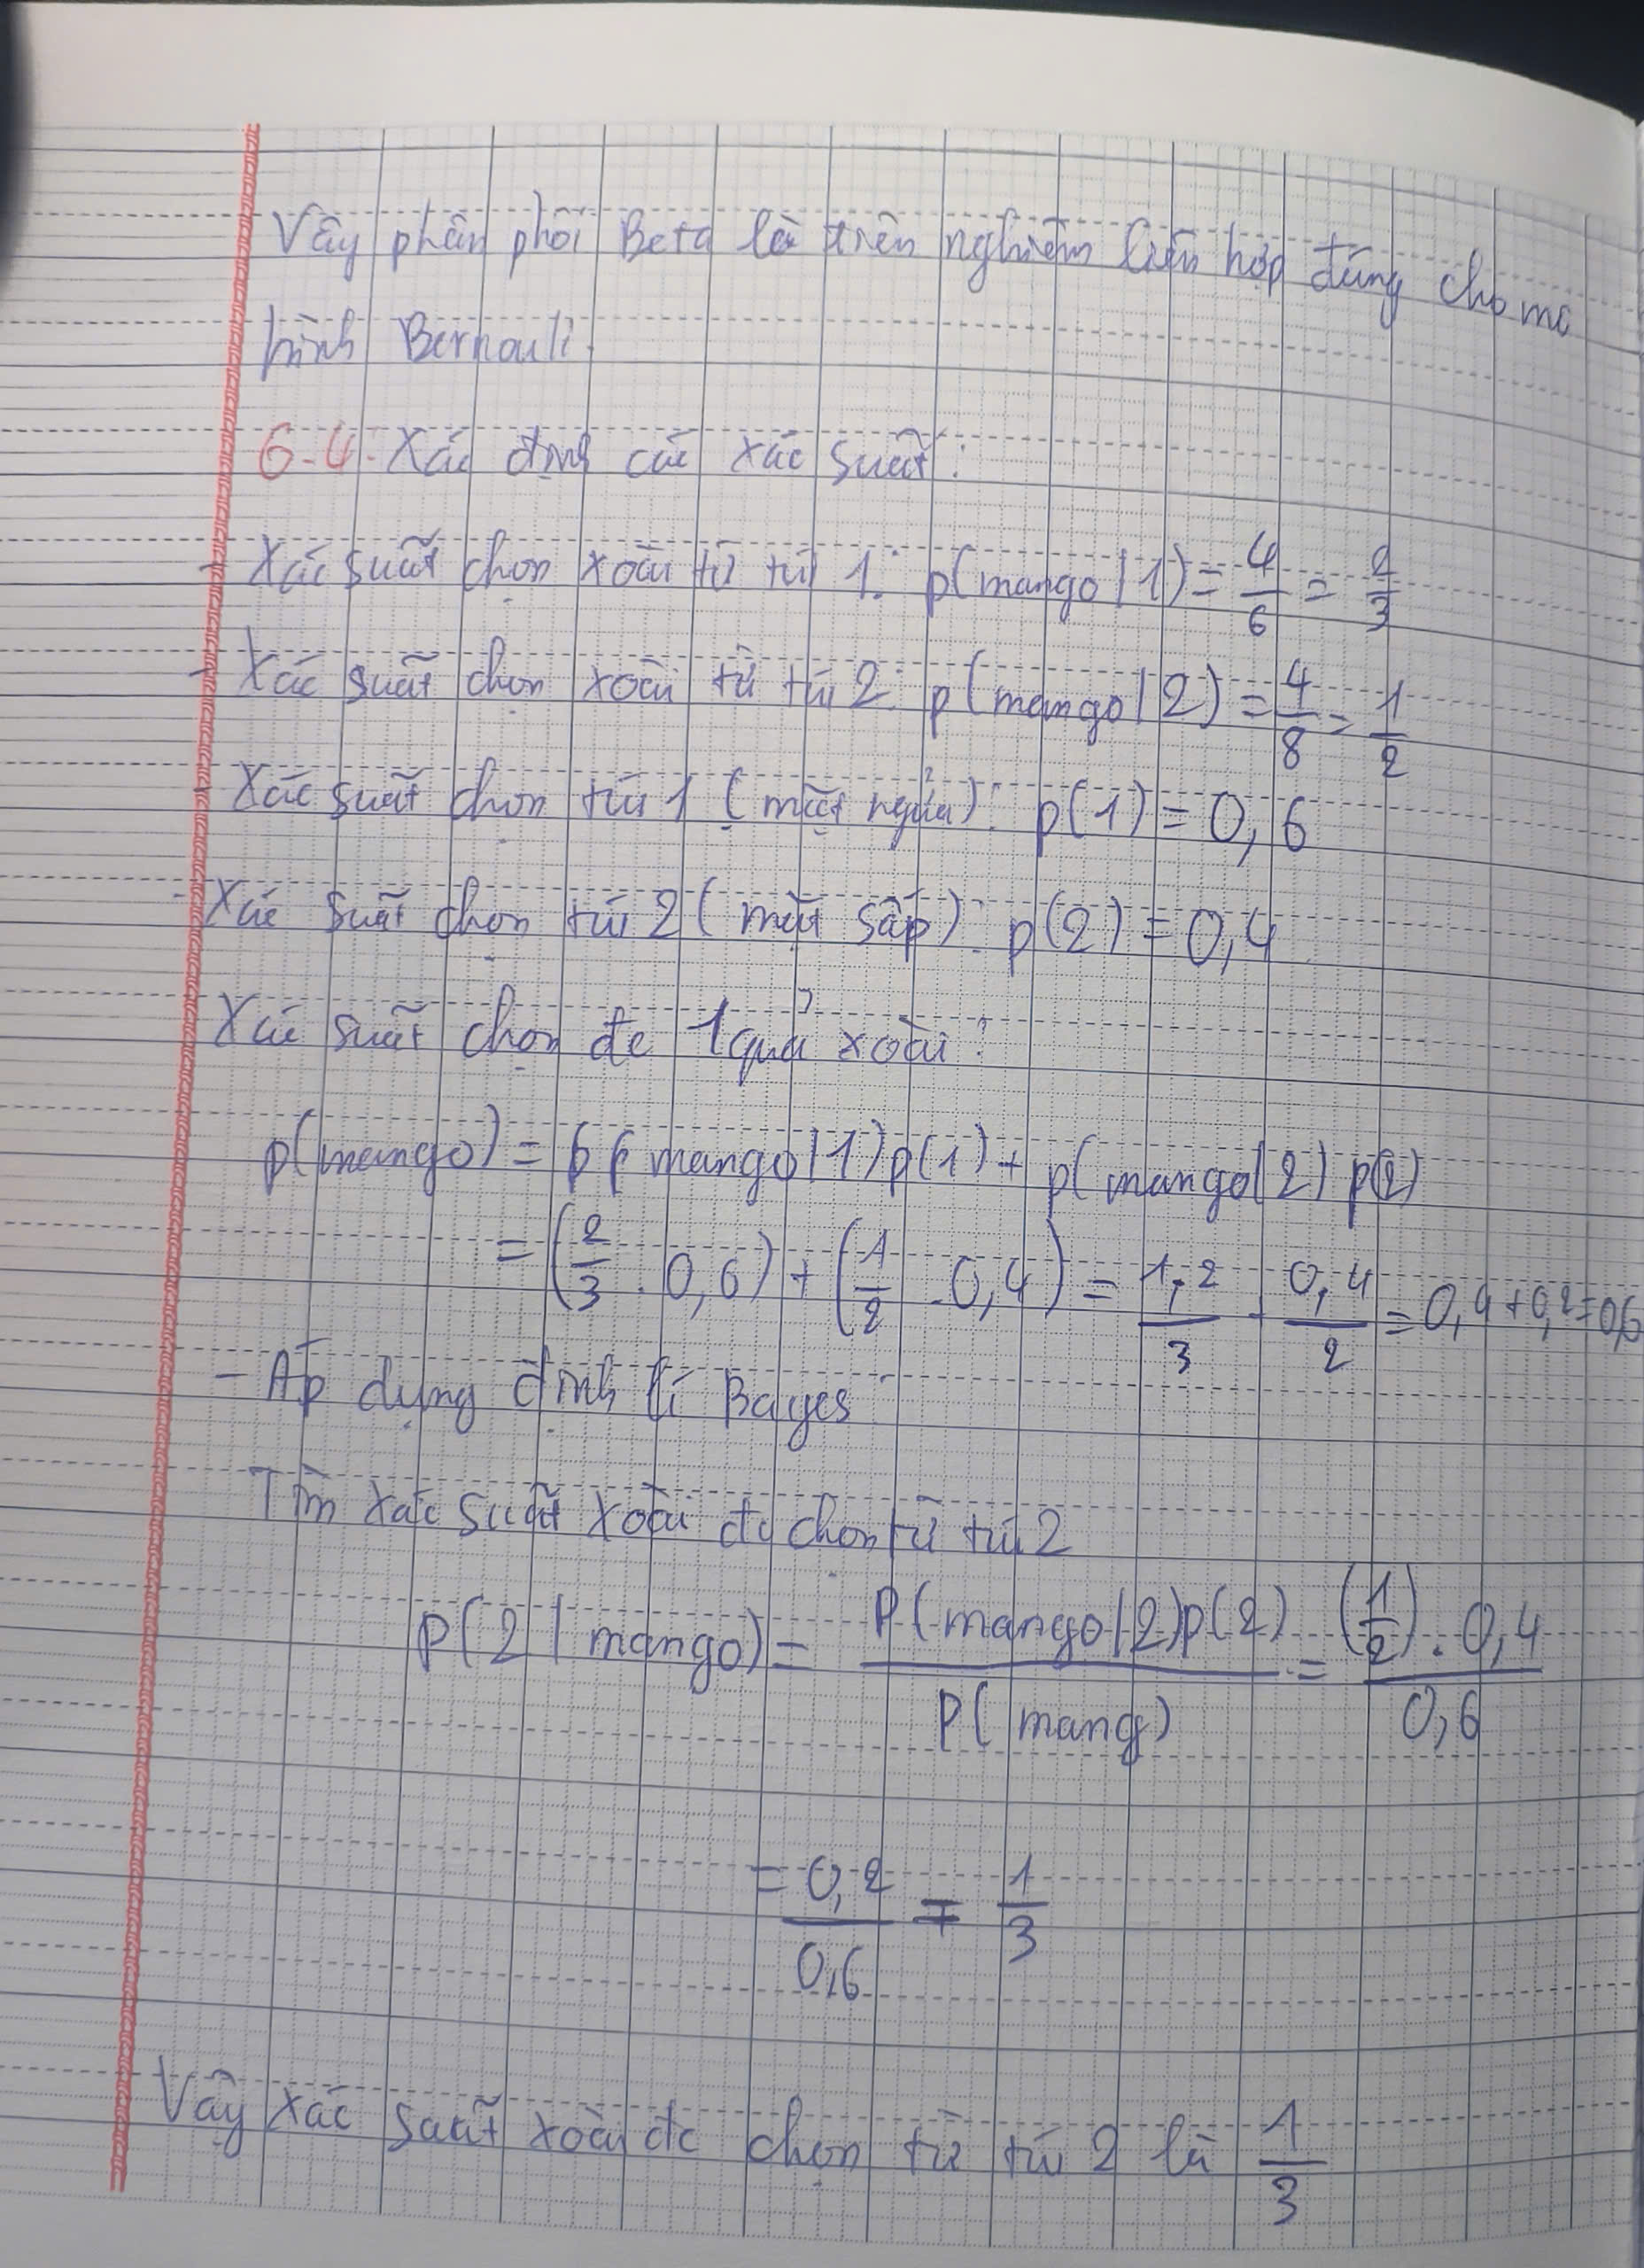 Vậy phân phối Beta là tiên nghiệm liên hợp đúng cho mô
hình Bernouli.
6.4: Xác định các xác suất:
- Xác suất chọn xoài từ túi 1: p(mango|1) = 4/6 = 2/3
- Xác suất chọn xoài từ túi 2: p(mango|2) = 4/8 = 1/2
- Xác suất chọn túi 1 (mặt ngửa): p(1) = 0,6
- Xác suất chọn túi 2 (mặt sấp): p(2) = 0,4
Xác suất chọn đc 1 quả xoài:
p(mango) = p(mango|1)p(1) + p(mango|2)p(2)
= (2/3 . 0,6) + (1/2 . 0,4) = 1,2/3 + 0,4/2 = 0,4 + 0,2 = 0,6
- Áp dụng định lí Bayes
Tìm xác suất xoài đc chọn từ túi 2
P(2 | mango) = P(mango|2)p(2)/P(mang) = (1/2) . 0,4/0,6
= 0,2/0,6 = 1/3
Vậy xác suất xoài đc chọn từ túi 2 là 1/3